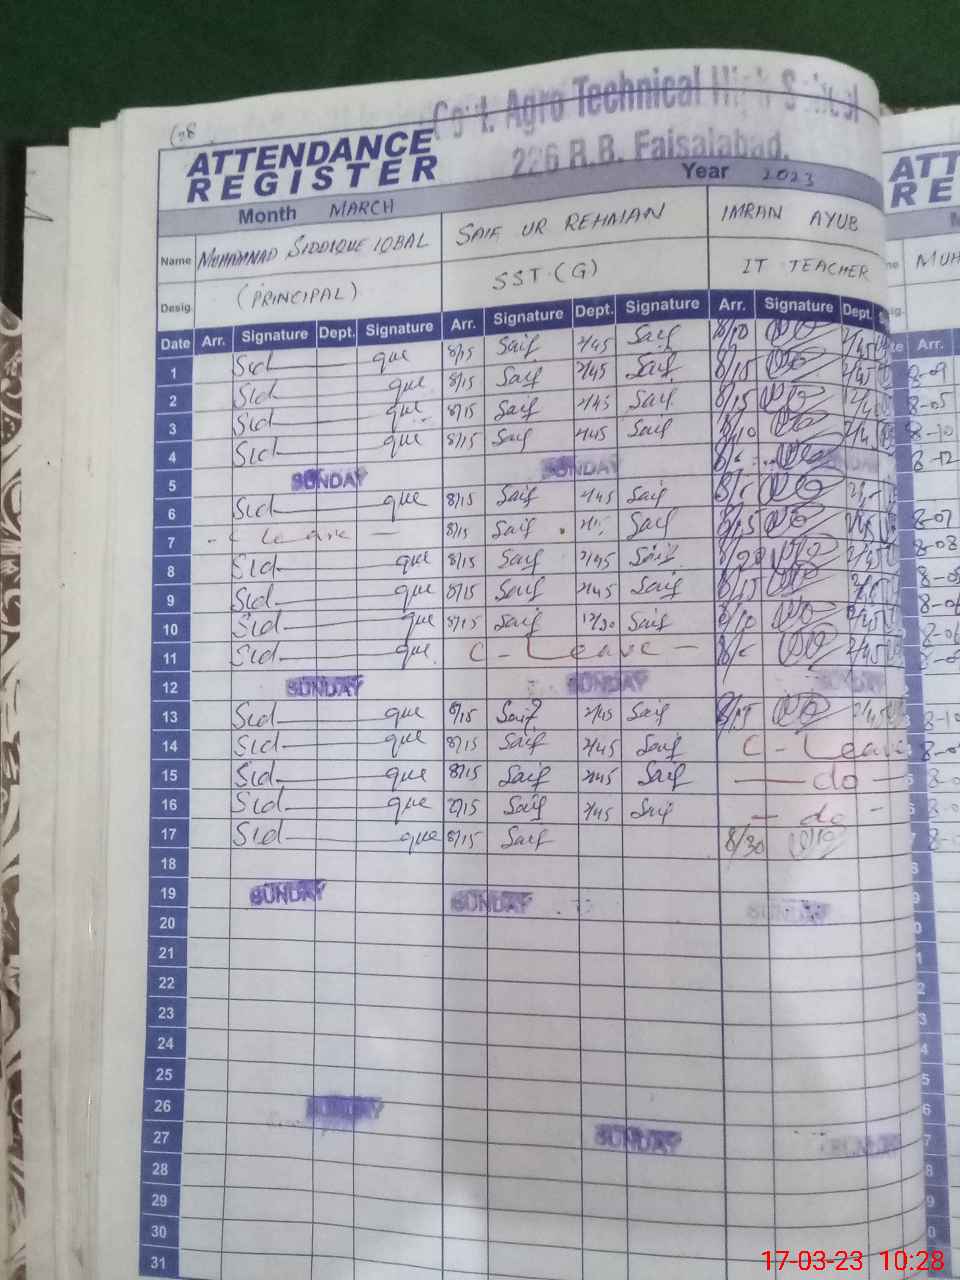 Govt. Agro Technical High School
226 R.B. Faisalabad.
ATTENDANCE
REGISTER
Year 2023
Month MARCH
Name MUHAMMAD SIDDIQUE IQBAL SAIF UR REHMAN IMRAN AYUB
Desig. (PRINCIPAL) SST (G) IT TEACHER
Date Arr. Signature Dept. Signature Arr. Signature Dept. Signature Arr. Signature Dept.
1 Sid que 8/15 Saif 2/45 Saif 8/10 2/45
2 Sid que 8/15 Saif 2/45 Saif 8/15 2/45
3 Sid que 8/15 Saif 2/45 Saif 8/15
4 Sid que 8/15 Saif 2/45 Saif 8/10
5 SUNDAY SUNDAY SUNDAY
6 Sid que 8/15 Saif 2/45 Saif
7 - C Leave - 8/15 Saif Saif 8/15
8 Sid que 8/15 Saif 2/45 Saif 8/20 2/45
9 Sid que 8/15 Saif 2/45 Saif 8/15
10 Sid que 8/15 Saif 12/30 Saif 8/10 2/45
11 Sid que C - Leave - 2/45
12 SUNDAY SUNDAY SUNDAY
13 Sid que 8/15 Saif 2/45 Saif 8/15 2/45
14 Sid que 8/15 Saif 2/45 Saif C - Leave
15 Sid que 8/15 Saif 2/45 Saif — do —
16 Sid que 8/15 Saif 2/45 Saif — do -
17 Sid que 8/15 Saif 8/30
18
19 SUNDAY SUNDAY SUNDAY
20
21
22
23
24
25
26 SUNDAY
27 SUNDAY SUNDAY
28
29
30
31
ATT
RE
MUH
Arr.
8-09
8-05
8-10
8-12
8-07
8-08
8-06
8-06
8-10
17-03-23 10:28